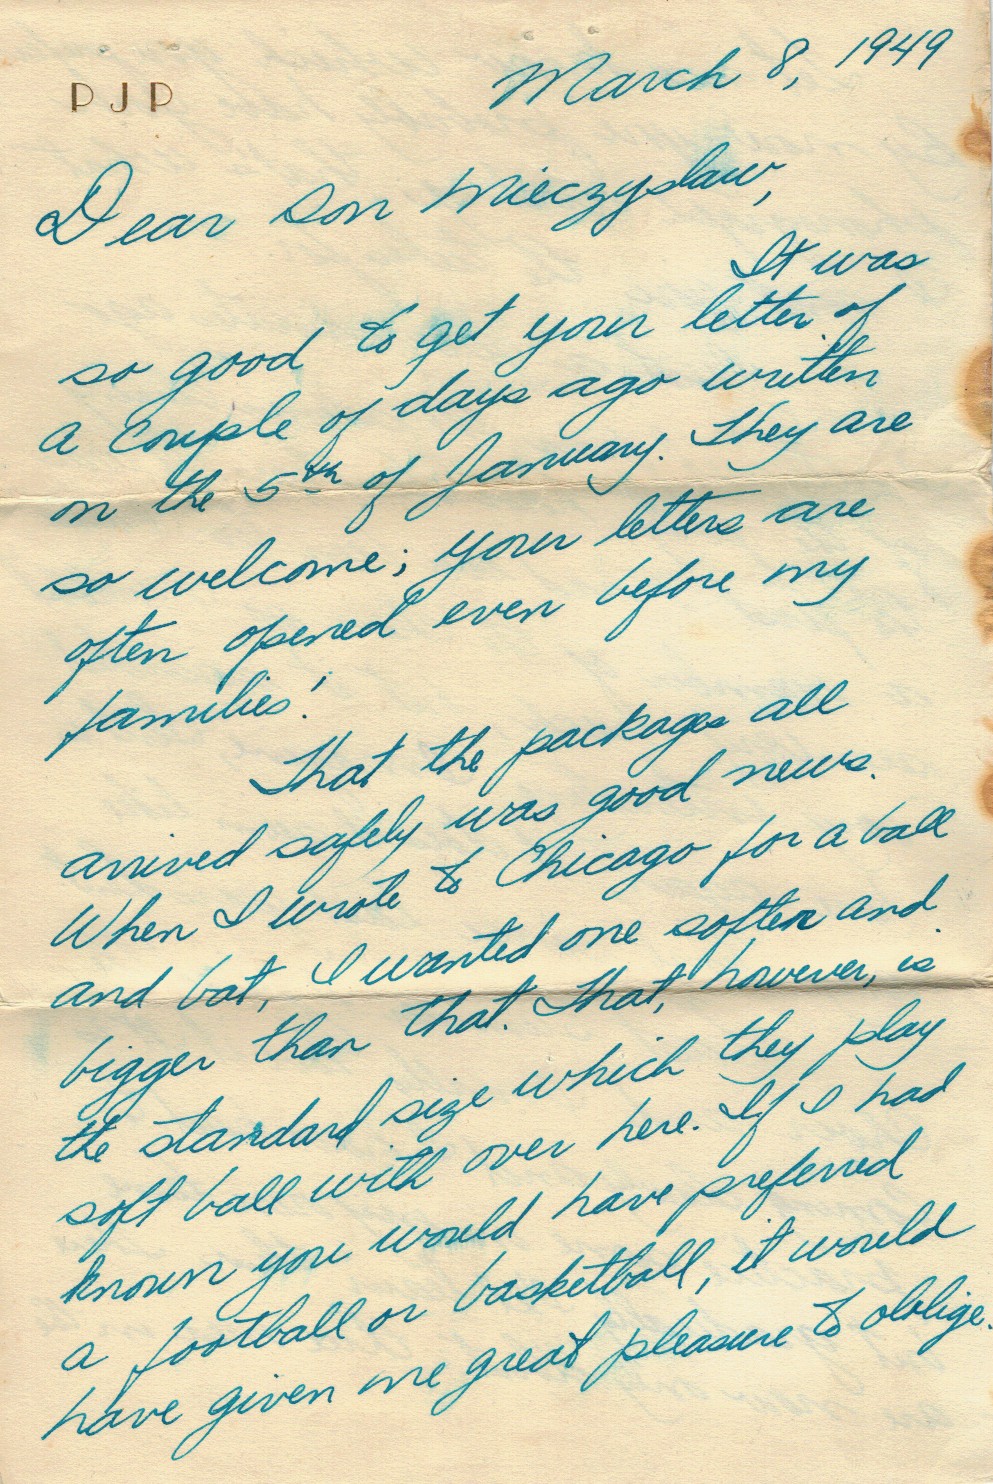 P J P
March 8, 1949
Dear Son Mieczyslaw,
It was
so good to get your letter of
a couple of days ago written
on the 5th of January. They are
so welcome; your letters are
often opened even before my
families'.
That the packages all
arrived safely was good news.
When I wrote to Chicago for a ball
and bat, I wanted one softer and
bigger than that. That, however, is
the standard size which they play
soft ball with over here. If I had
known you would have preferred
a football or basketball, it would
have given me great pleasure to oblige.